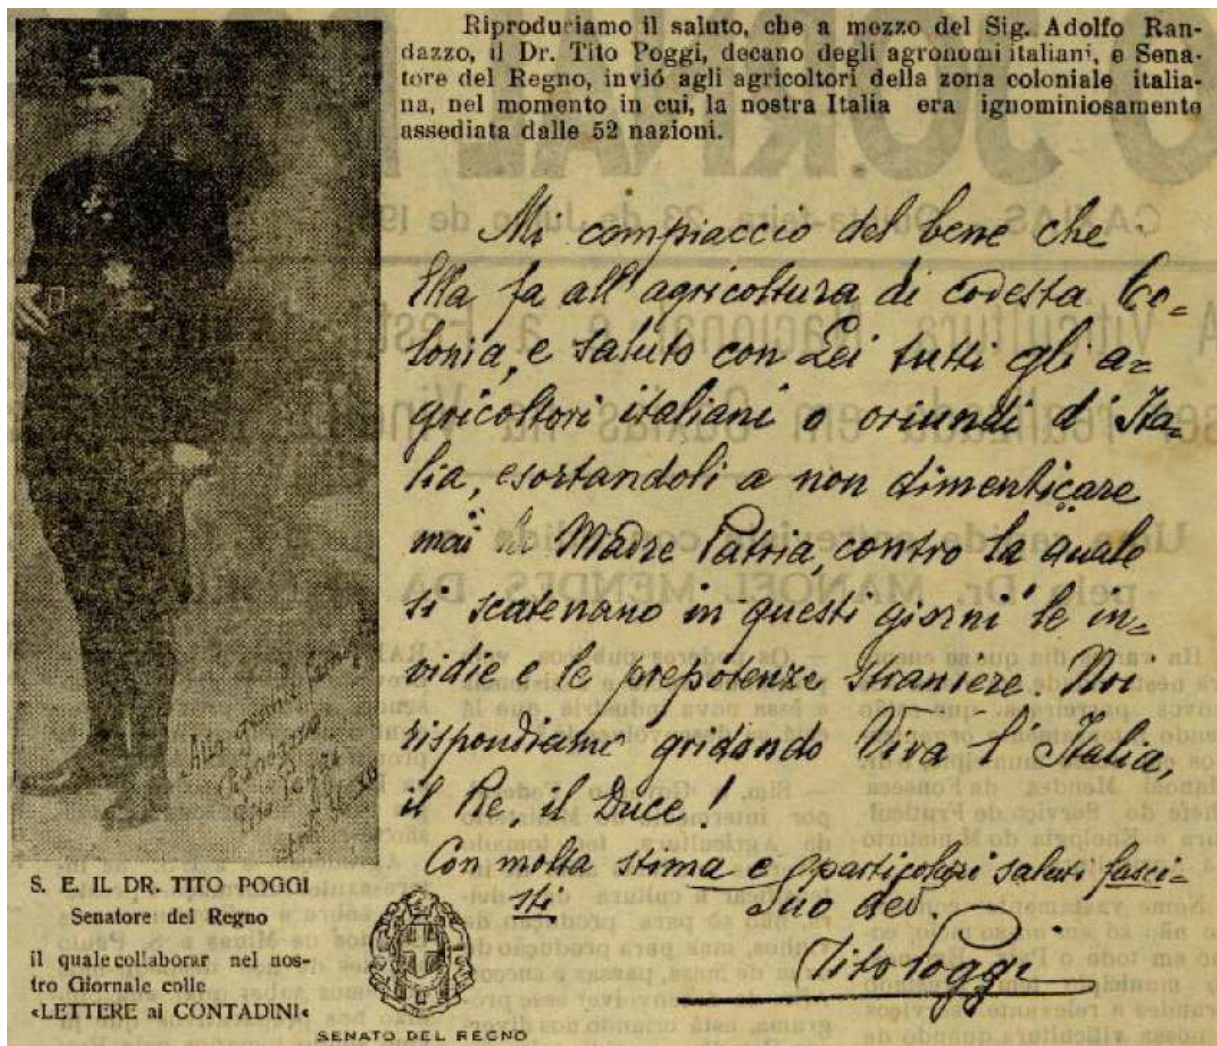 Riproduciamo il saluto, che a mezzo del Sig. Adolfo Ran-
dazzo, il Dr. Tito Poggi, decano degli agronomi italiani, e Sena-
tore del Regno, invió agli agricoltori della zona coloniale italia-
na, nel momento in cui, la nostra Italia era ignominiosamente
assediata dalle 52 nazioni.
Mi compiaccio del bene che
Ella fa all'agricoltura di codesta Co=
lonia, e saluto con Lei tutti gli a=
gricoltori italiani o oriundi d'Ita=
lia, esortandoli a non dimenticare
mai la Madre Patria, contro la quale
si scatenano in questi giorni le in=
vidie e le prepotenze straniere. Noi
rispondiamo gridando Viva l'Italia,
il Re, il Duce!
Con molta stima e particolari saluti fasci=
sti
Suo dev.
Tito Poggi
Randazzo
S. E. IL DR. TITO POGGI
Senatore del Regno
il quale collaborar nel nos-
tro Giornale colle
«LETTERE ai CONTADINI«
SENATO DEL REGNO